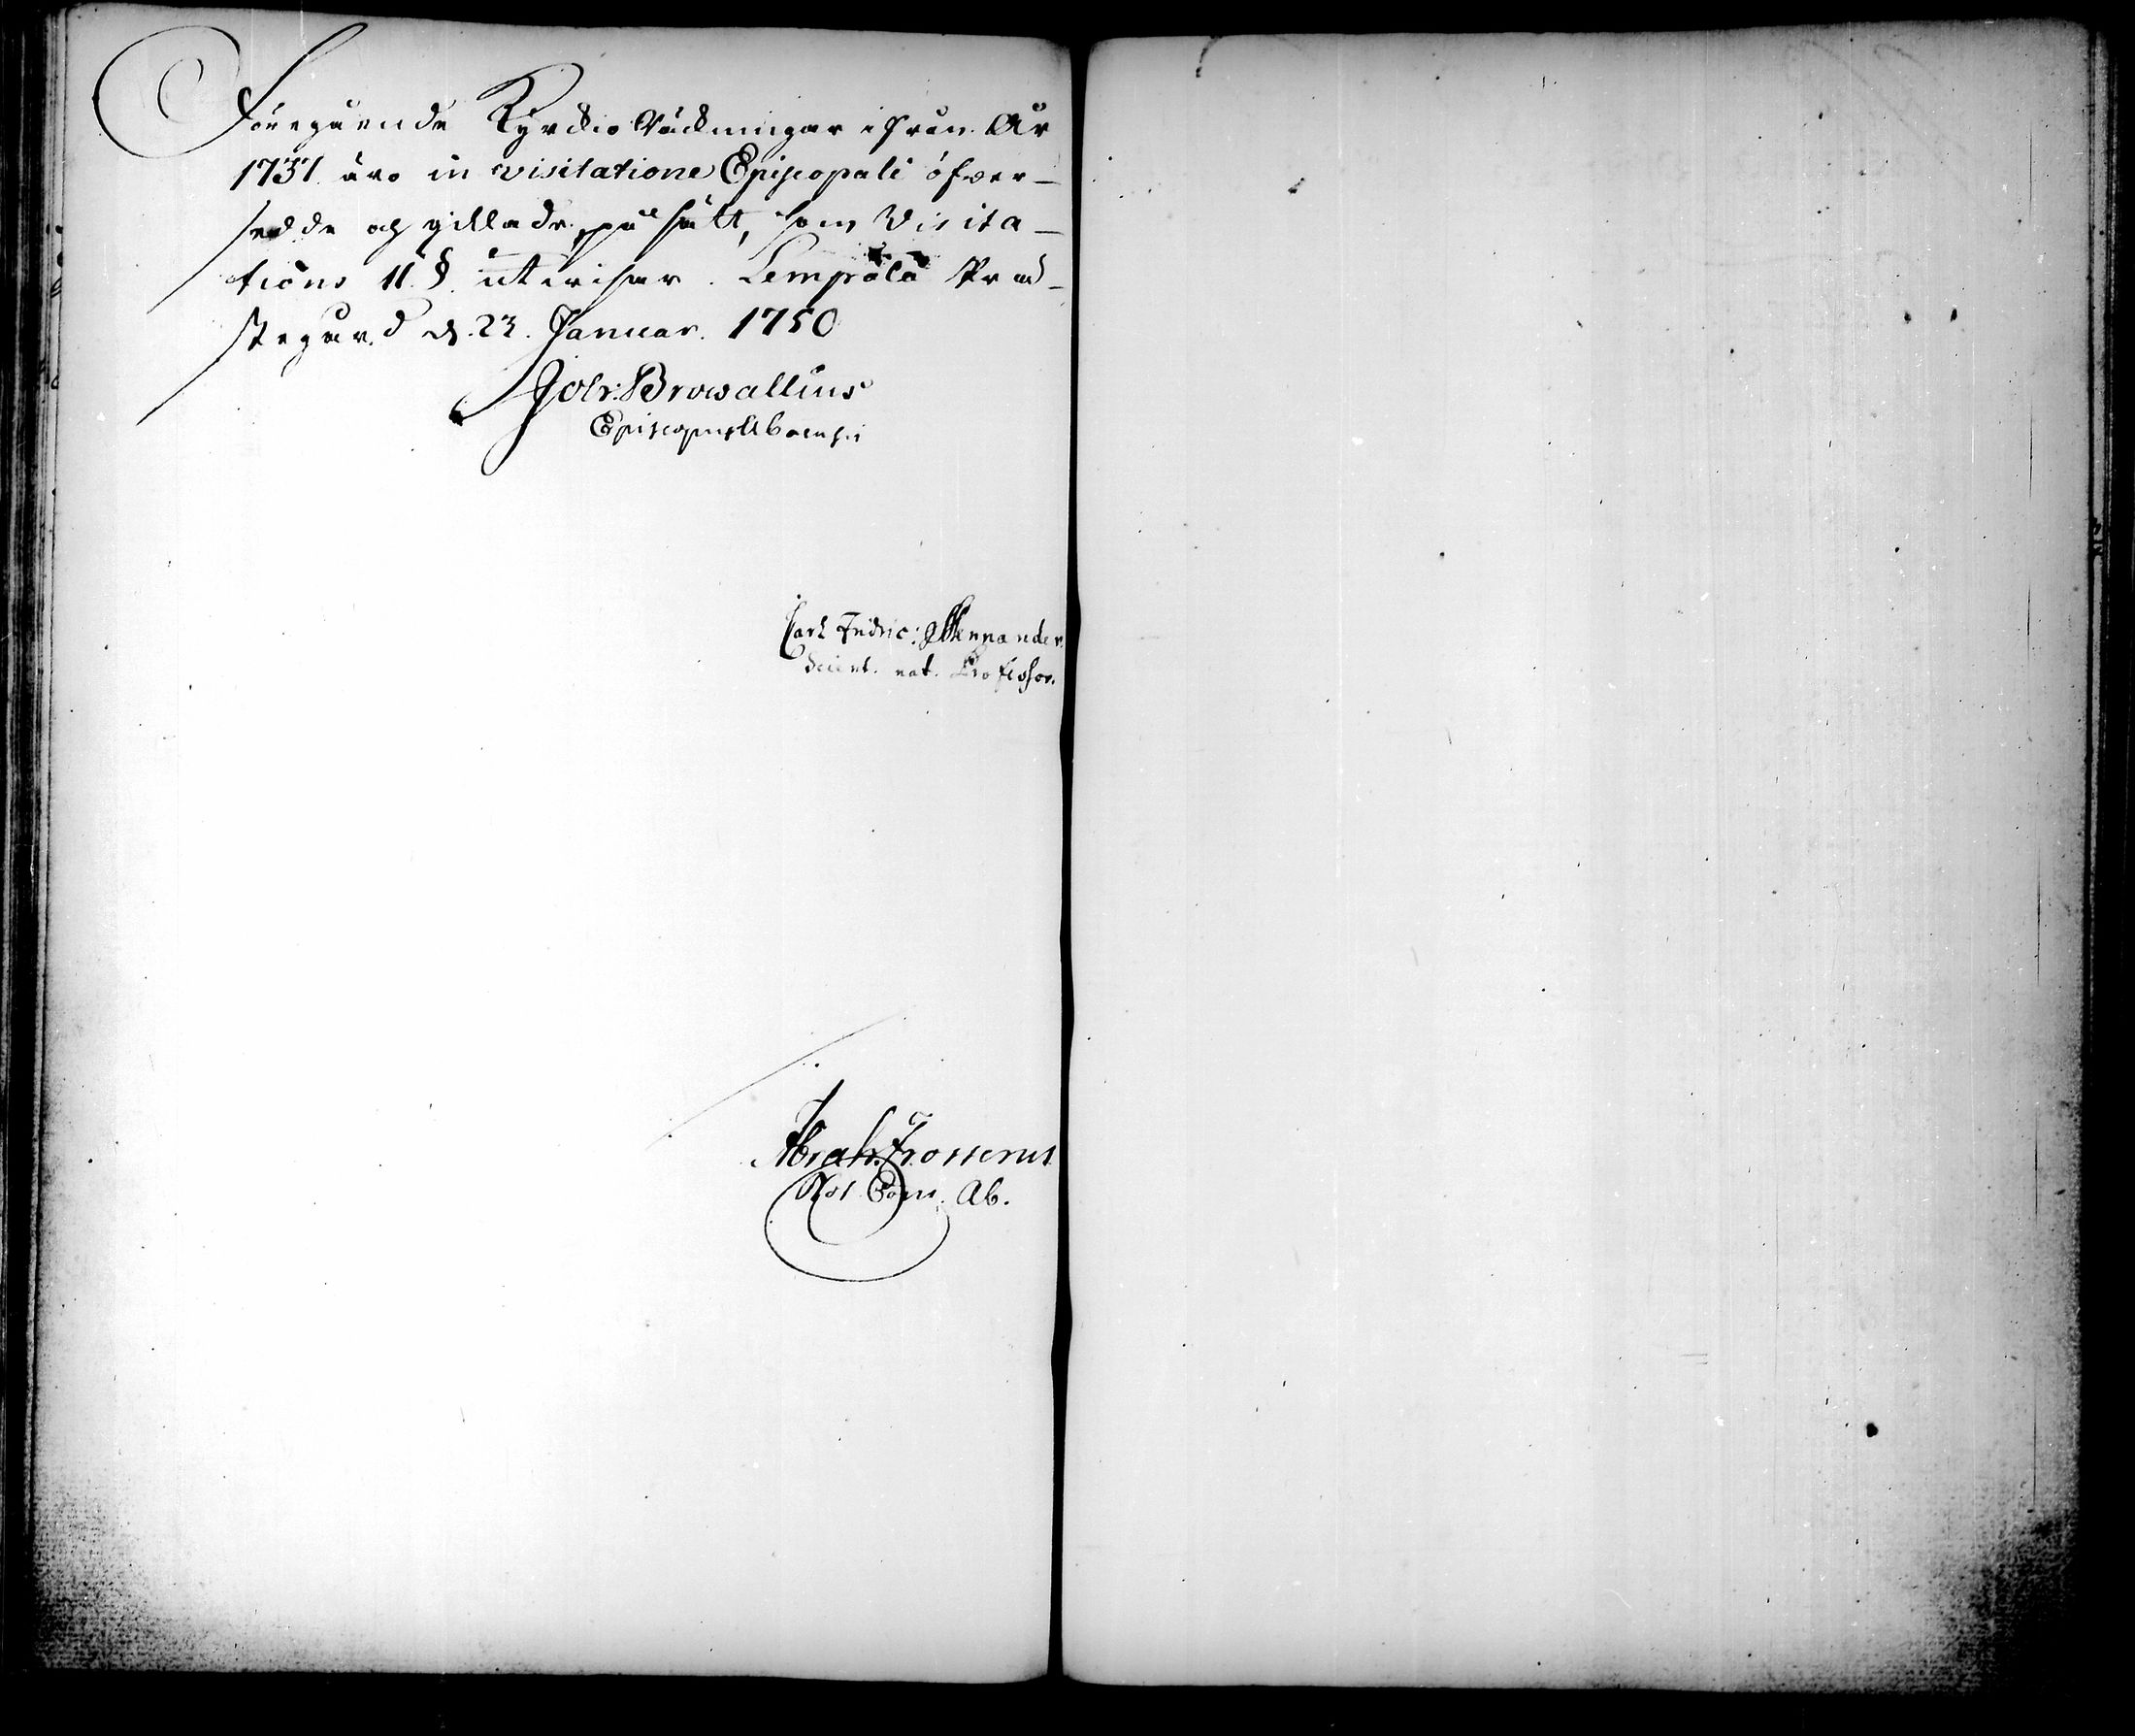 Föregående Kyrckio Räckningar ifrån År
1737 äro in visitatione Episcopali öfwer-
sedde och gillade, på sätt, som Visita-
tions 11 §. utwisar. Lempälä Präd-
stegård d. 23. Januar. 1750
Joh: Browallius
Episcopus Aboensis
Carl Fridric: Mennander.
Scient. nat. Professor.
Abrah. Frosterus
Not Cons. Ab.